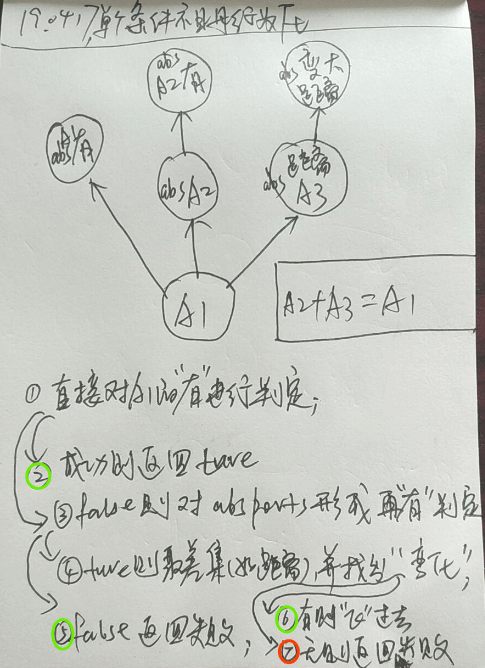 19.04.17, 单个条件不具
abs A2有
abs 变大 距离
abs有
abs A2
abs 距离 A3
A1
A2+A3=A1
① 直接对A1的"有"进行判定;
② 成功则返回ture
③ false则对absports形成再"有"判定
④ ture则取差集(如距离),并找出"变化";
⑤ false返回失败;
⑥ 有则"飞"过去
⑦ 无则返回失败